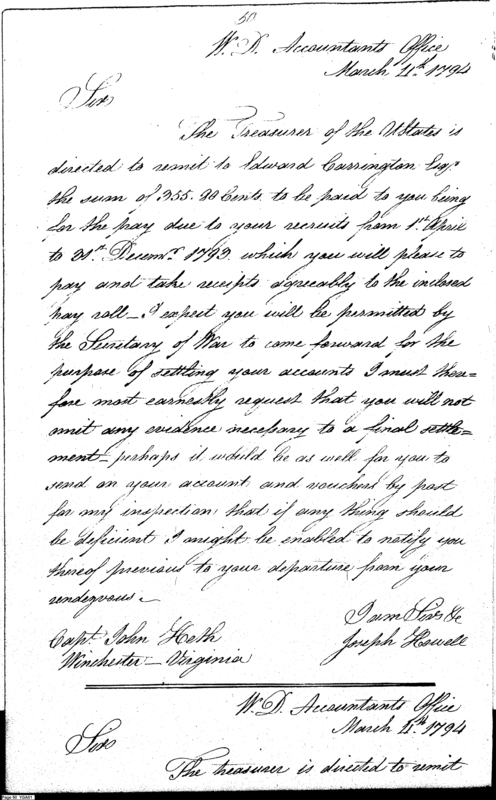 50
W. D. Accountants Office
March 11th 1794
Sir
The Treasurer of the UStates is
directed to remit to Edward Carrington Esqr
the sum of 355. 20 Cents. to be paid to you being
for the pay due to your recruits from 1st April
to 31st Decemr 1793 which you will please to
pay and take receipts agreeably to the inclosed
pay roll _ I expect you will be permitted by
the Secretary of War to come forward for the
purpose of settling your accounts I must there=
fore most earnestly request that you will not
omit any evidence necessary to a final settle=
ment _ perhaps it would be as well for you to
send on your account and vouchers by post
for my inspection that if any thing should
be deficient I might be enabled to notify you
thereof previous to your departure from your
rendezvous _
I am Sir &c
Capt. John Heth
Joseph Howell
Winchester _ Virginia
W. D. Accountants Office
March 11th 1794
Sir
The treasurer is directed to remit